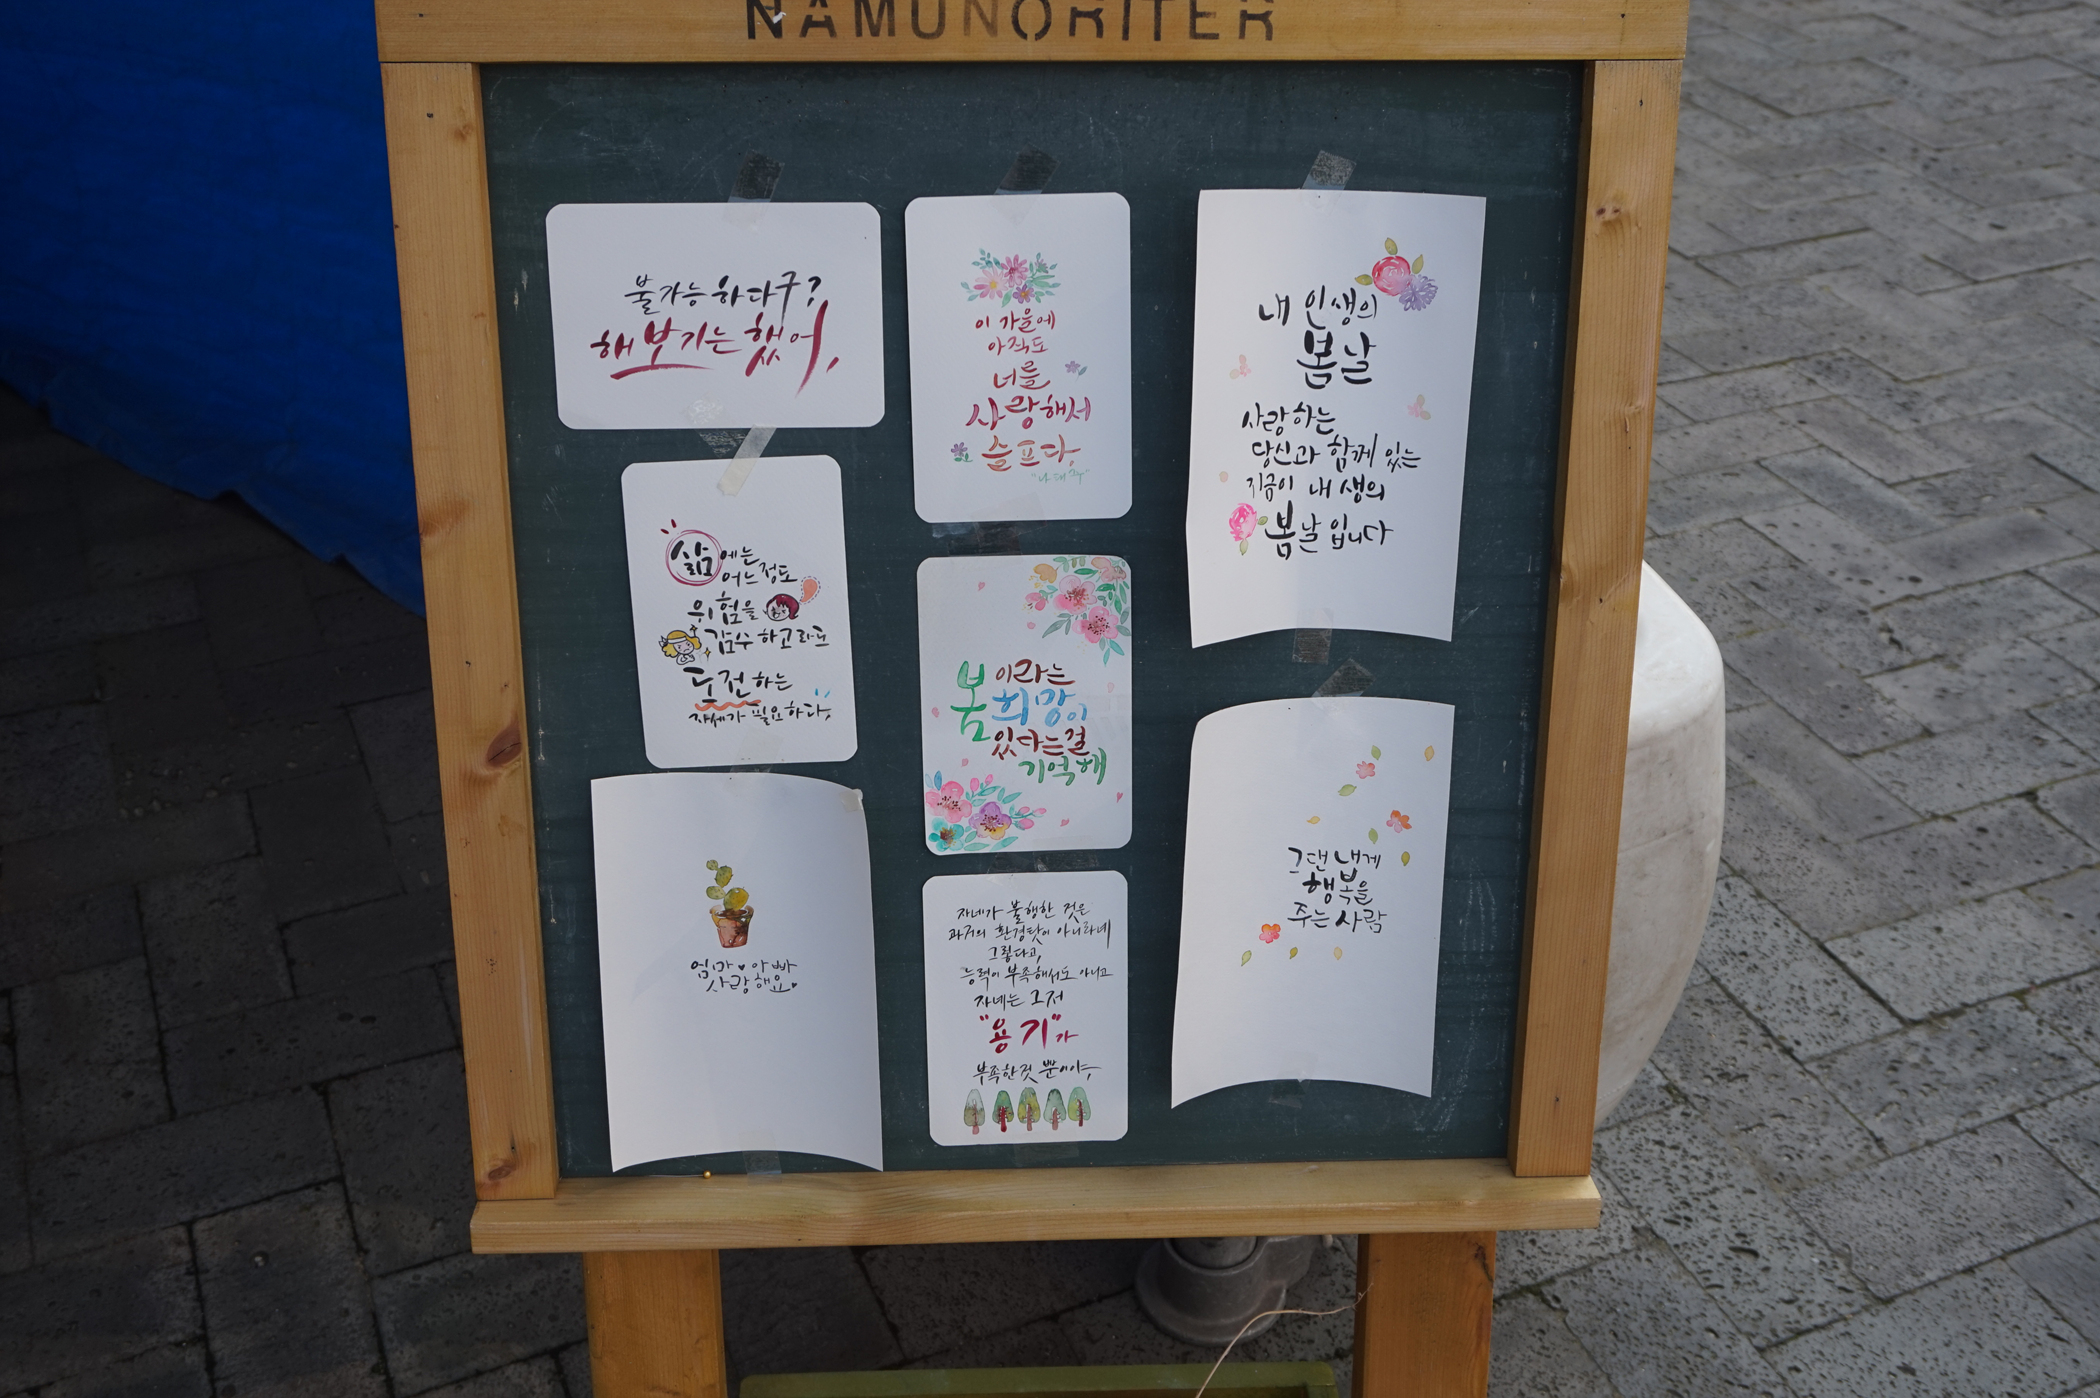 NAMUNORITER
불가능하다구?
해보기는 했어,
삶에는
어느정도
위험을
감수하고라도
도전하는
자세가 필요하다,
엄마♥아빠
사랑해요♥
이 가을에
아직도
너를
사랑해서
슬프다.
"나태주"
봄이라는
희망이
있다는걸
기억해
자네가 불행한 것은
과거의 환경탓이 아니라네
그렇다고,
능력이 부족해서도 아니고
자네는 그저
"용기"가
부족한것 뿐이야,
내 인생의
봄날
사랑하는
당신과 함께 있는
지금이 내 생의
봄날입니다
그댄 내게
행복을
주는 사람